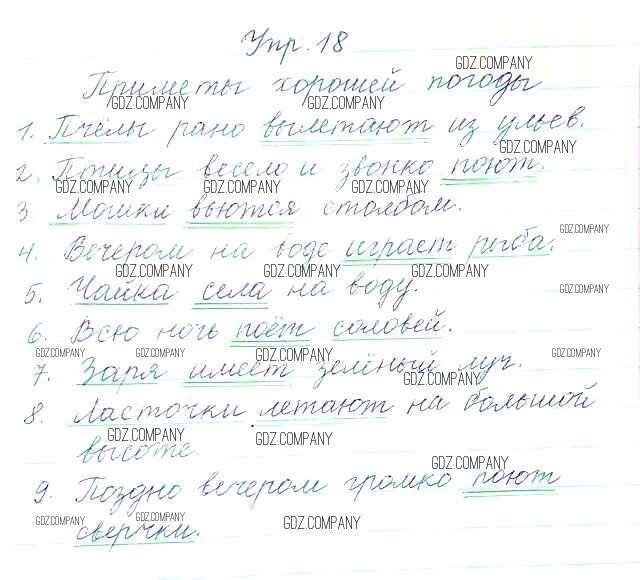 Упр. 18
GDZ.COMPANY
Приметы хорошей погоды
GDZ.COMPANY GDZ.COMPANY
1. Пчёлы рано вылетают из ульев.
GDZ.COMPANY
2. Птицы весело и звонко поют.
GDZ.COMPANY GDZ.COMPANY GDZ.COMPANY
3 Мошки вьются столбом.
GDZ.COMPANY
4. Вечером на воде играет рыба.
GDZ.COMPANY GDZ.COMPANY GDZ.COMPANY
5. Чайка села на воду.
GDZ.COMPANY
6. Всю ночь поёт соловей.
GDZ.COMPANY GDZ.COMPANY GDZ.COMPANY GDZ.COMPANY
7. Заря имеет зелёный луч.
GDZ.COMPANY
8. Ласточки летают на большой
GDZ.COMPANY GDZ.COMPANY
высоте.
GDZ.COMPANY
9. Поздно вечером громко поют
GDZ.COMPANY GDZ.COMPANY GDZ.COMPANY
сверчки.